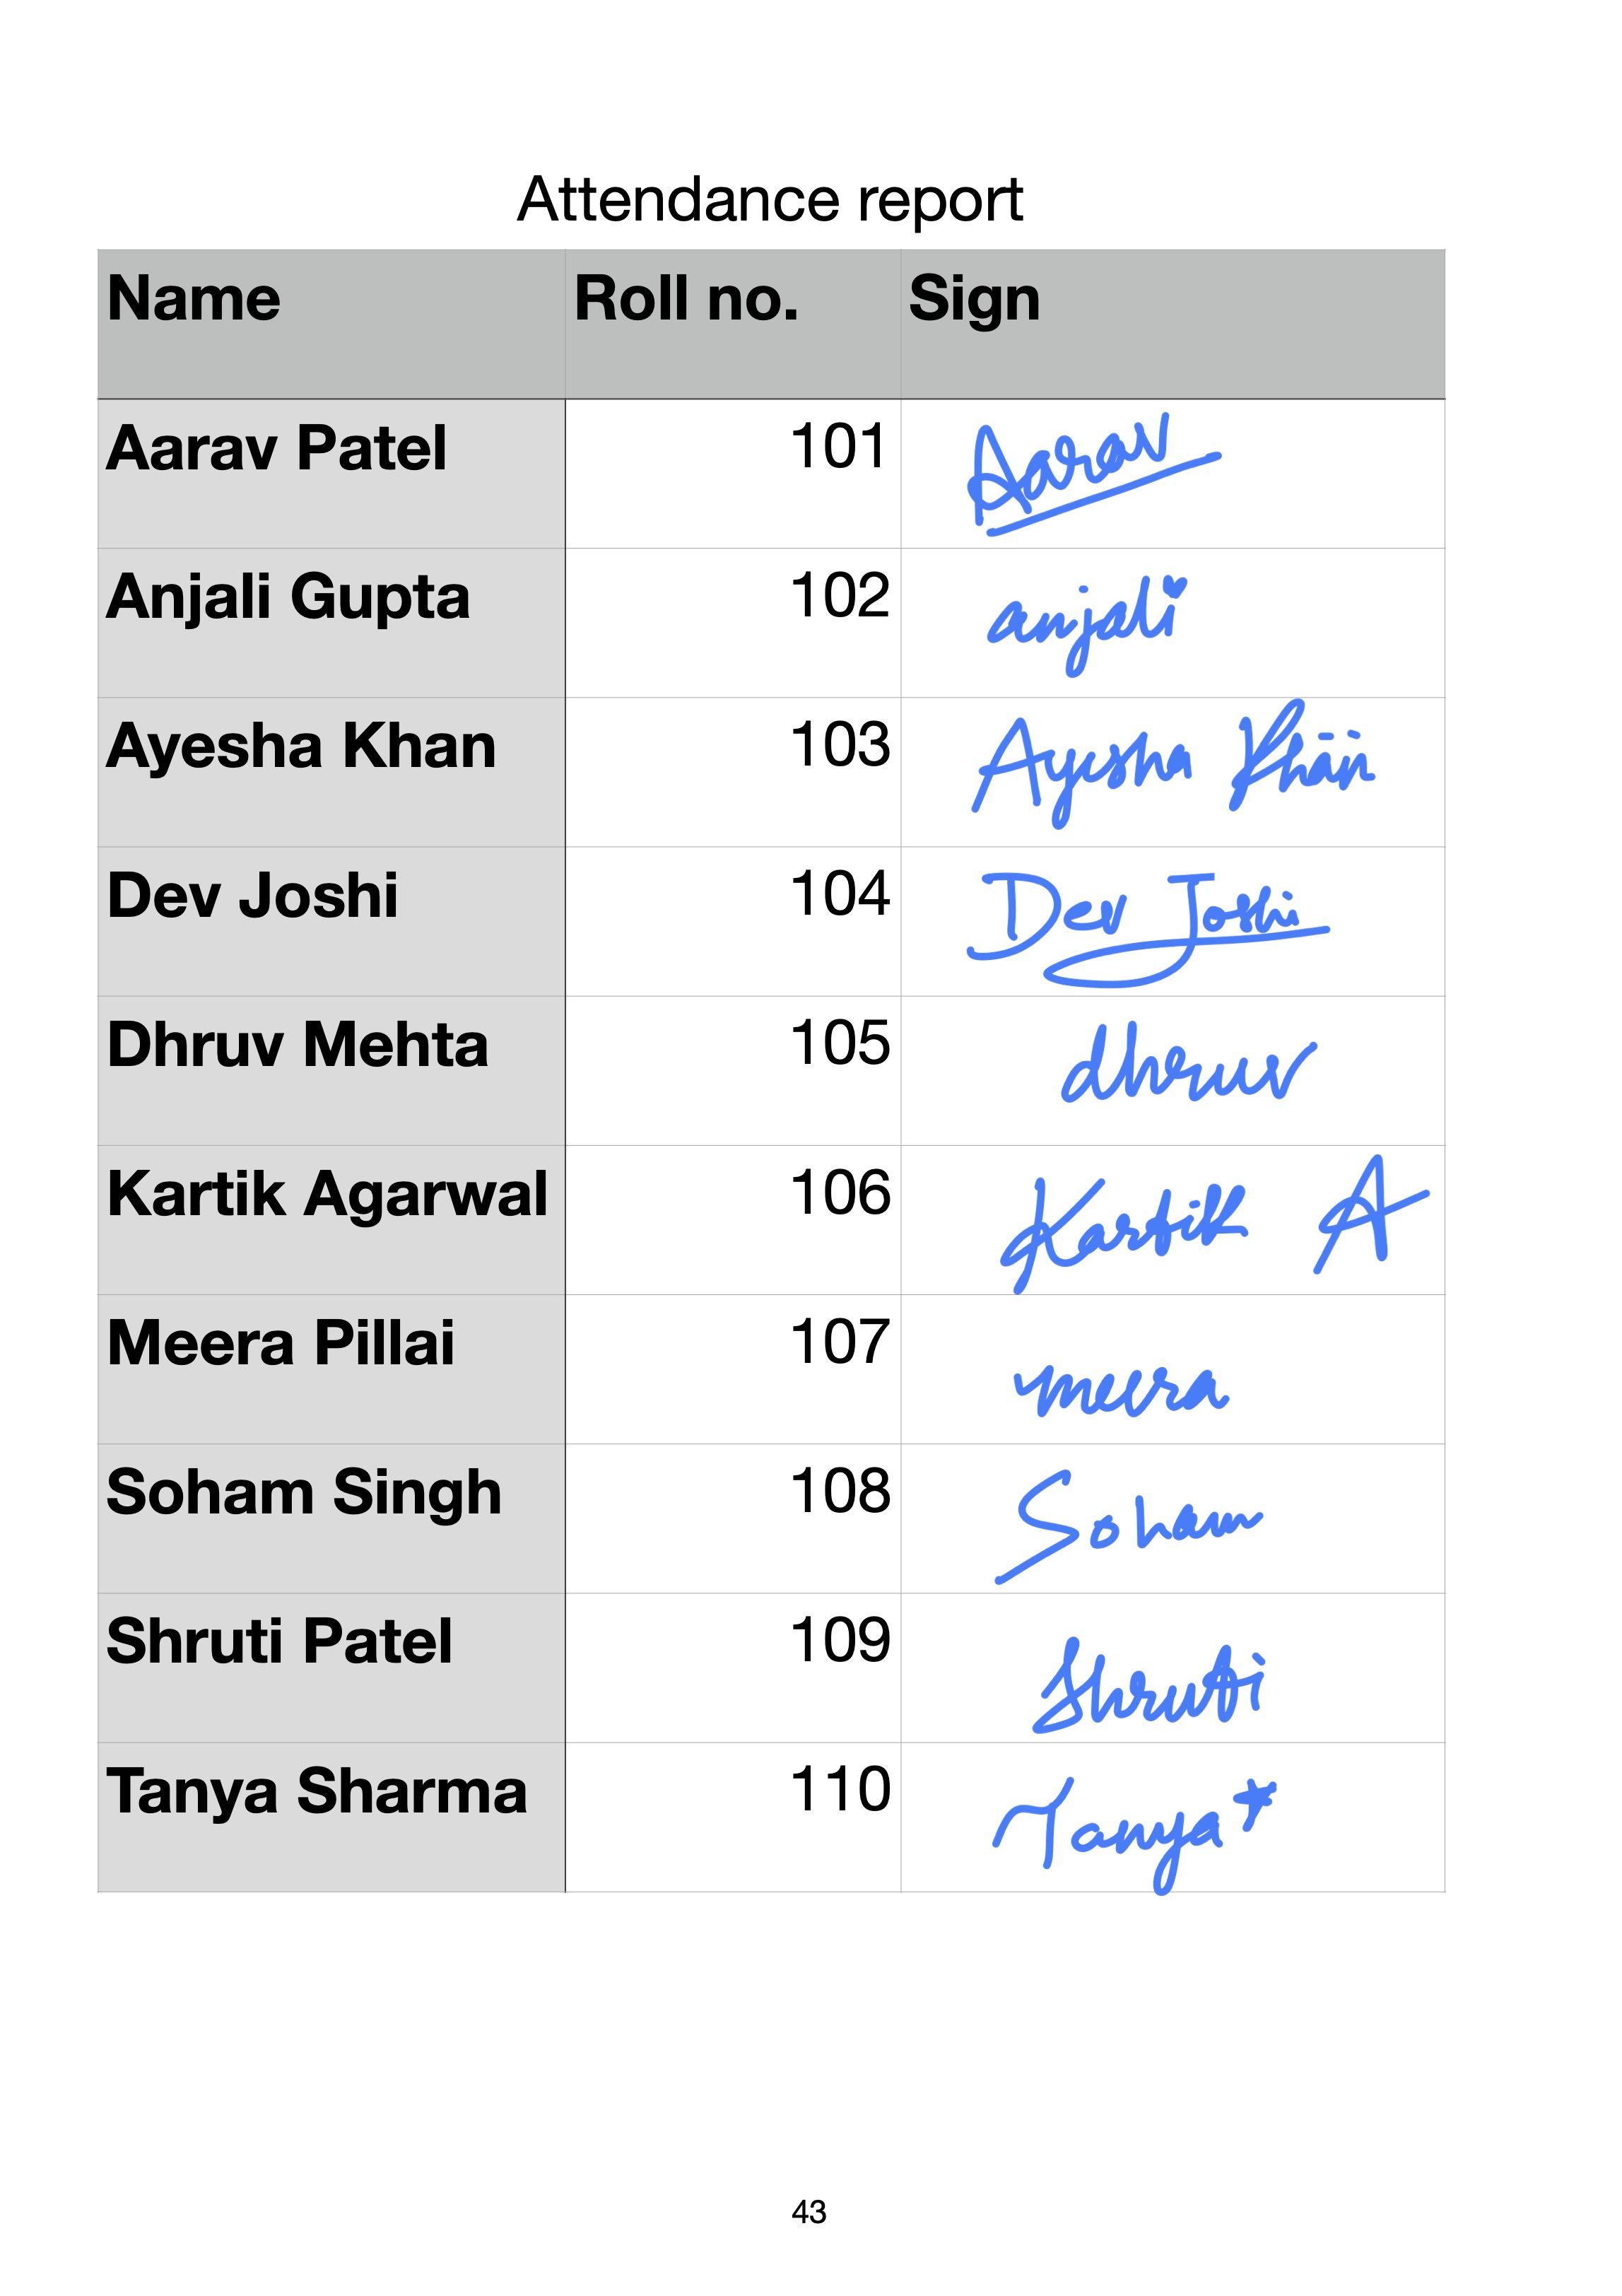 Attendance report
Name Roll no. Sign
Aarav Patel 101 Aarav
Anjali Gupta 102 anjali
Ayesha Khan 103 Ayesha Khan
Dev Joshi 104 Dev Joshi
Dhruv Mehta 105 dhruv
Kartik Agarwal 106 Kartik A
Meera Pillai 107 meera
Soham Singh 108 Soham
Shruti Patel 109 Shruti
Tanya Sharma 110 Tanya*
43